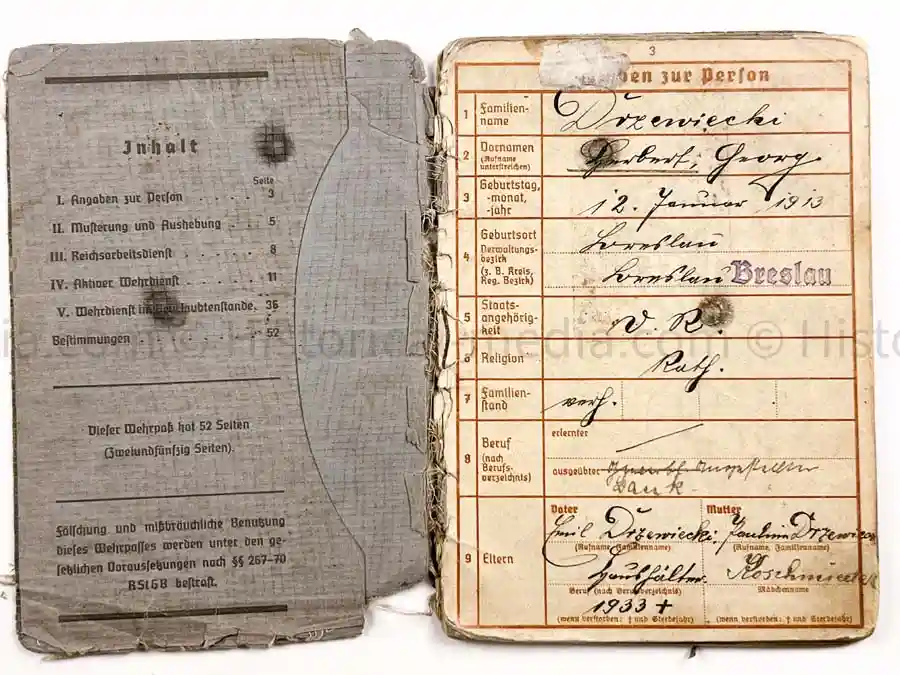 Inhalt
Seite
I. Angaben zur Person . . . . . . 3
II. Musterung und Aushebung . . 5
III. Reichsarbeitsdienst . . . . . . 8
IV. Aktiver Wehrdienst . . . . . . 11
V. Wehrdienst im Beurlaubtenstande. 36
Bestimmungen . . . . . . . . . 52
Dieser Wehrpaß hat 52 Seiten
(Zweiundfünfzig Seiten).
Fälschung und mißbräuchliche Benutzung
dieses Wehrpasses werden unter den ge-
setzlichen Voraussetzungen nach §§ 267-70
RStGB bestraft.
3
ben zur Person
1 Familien-
name
Drzewiecki
2 Vornamen
(Rufname
unterstreichen)
Herbert, Georg.
3 Geburtstag,
-monat,
-jahr
12. Januar 1913
4 Geburtsort
Verwaltungs-
bezirk
(z. B. Kreis,
Reg. Bezirk)
Breslau
Breslau Breslau
5 Staats-
angehörig-
keit
D. R.
6 Religion
Kath.
7 Familien-
stand
verh.
8 Beruf
(nach
Berufs-
verzeichnis)
erlernter
ausgeübter Angestellter
Bank
9 Eltern
Vater
Mutter
Emil Drzewiecki, Pauline Drzewiec
(Rufname, Familienname)
(Rufname, Familienname)
Haushälter.
Koschmieder
Beruf (nach Berufsverzeichnis)
Mädchenname
1933 +
(wenn verstorben: † und Sterbejahr)
(wenn verstorben: † und Sterbejahr)
© Histo